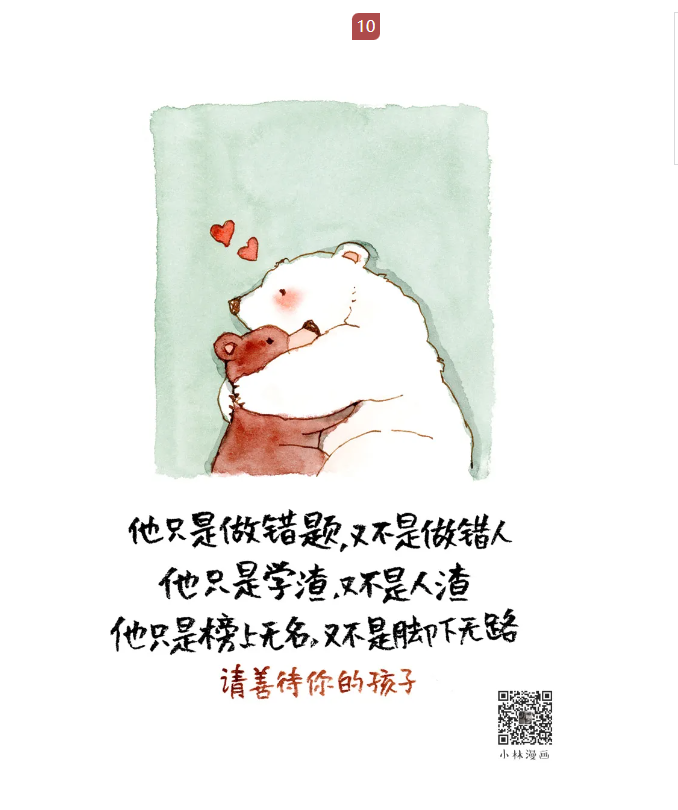 10
他只是做错题,又不是做错人
他只是学渣,又不是人渣
他只是榜上无名,又不是脚下无路
请善待你的孩子
小林漫画